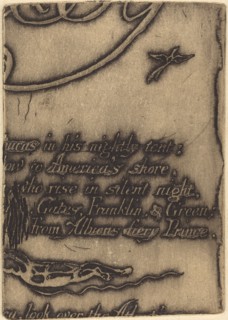 in his nightly tent:
to America's shore,
who rise in silent night,
Gates, Franklin, & Green;
from Albions fiery Prince.
look over the